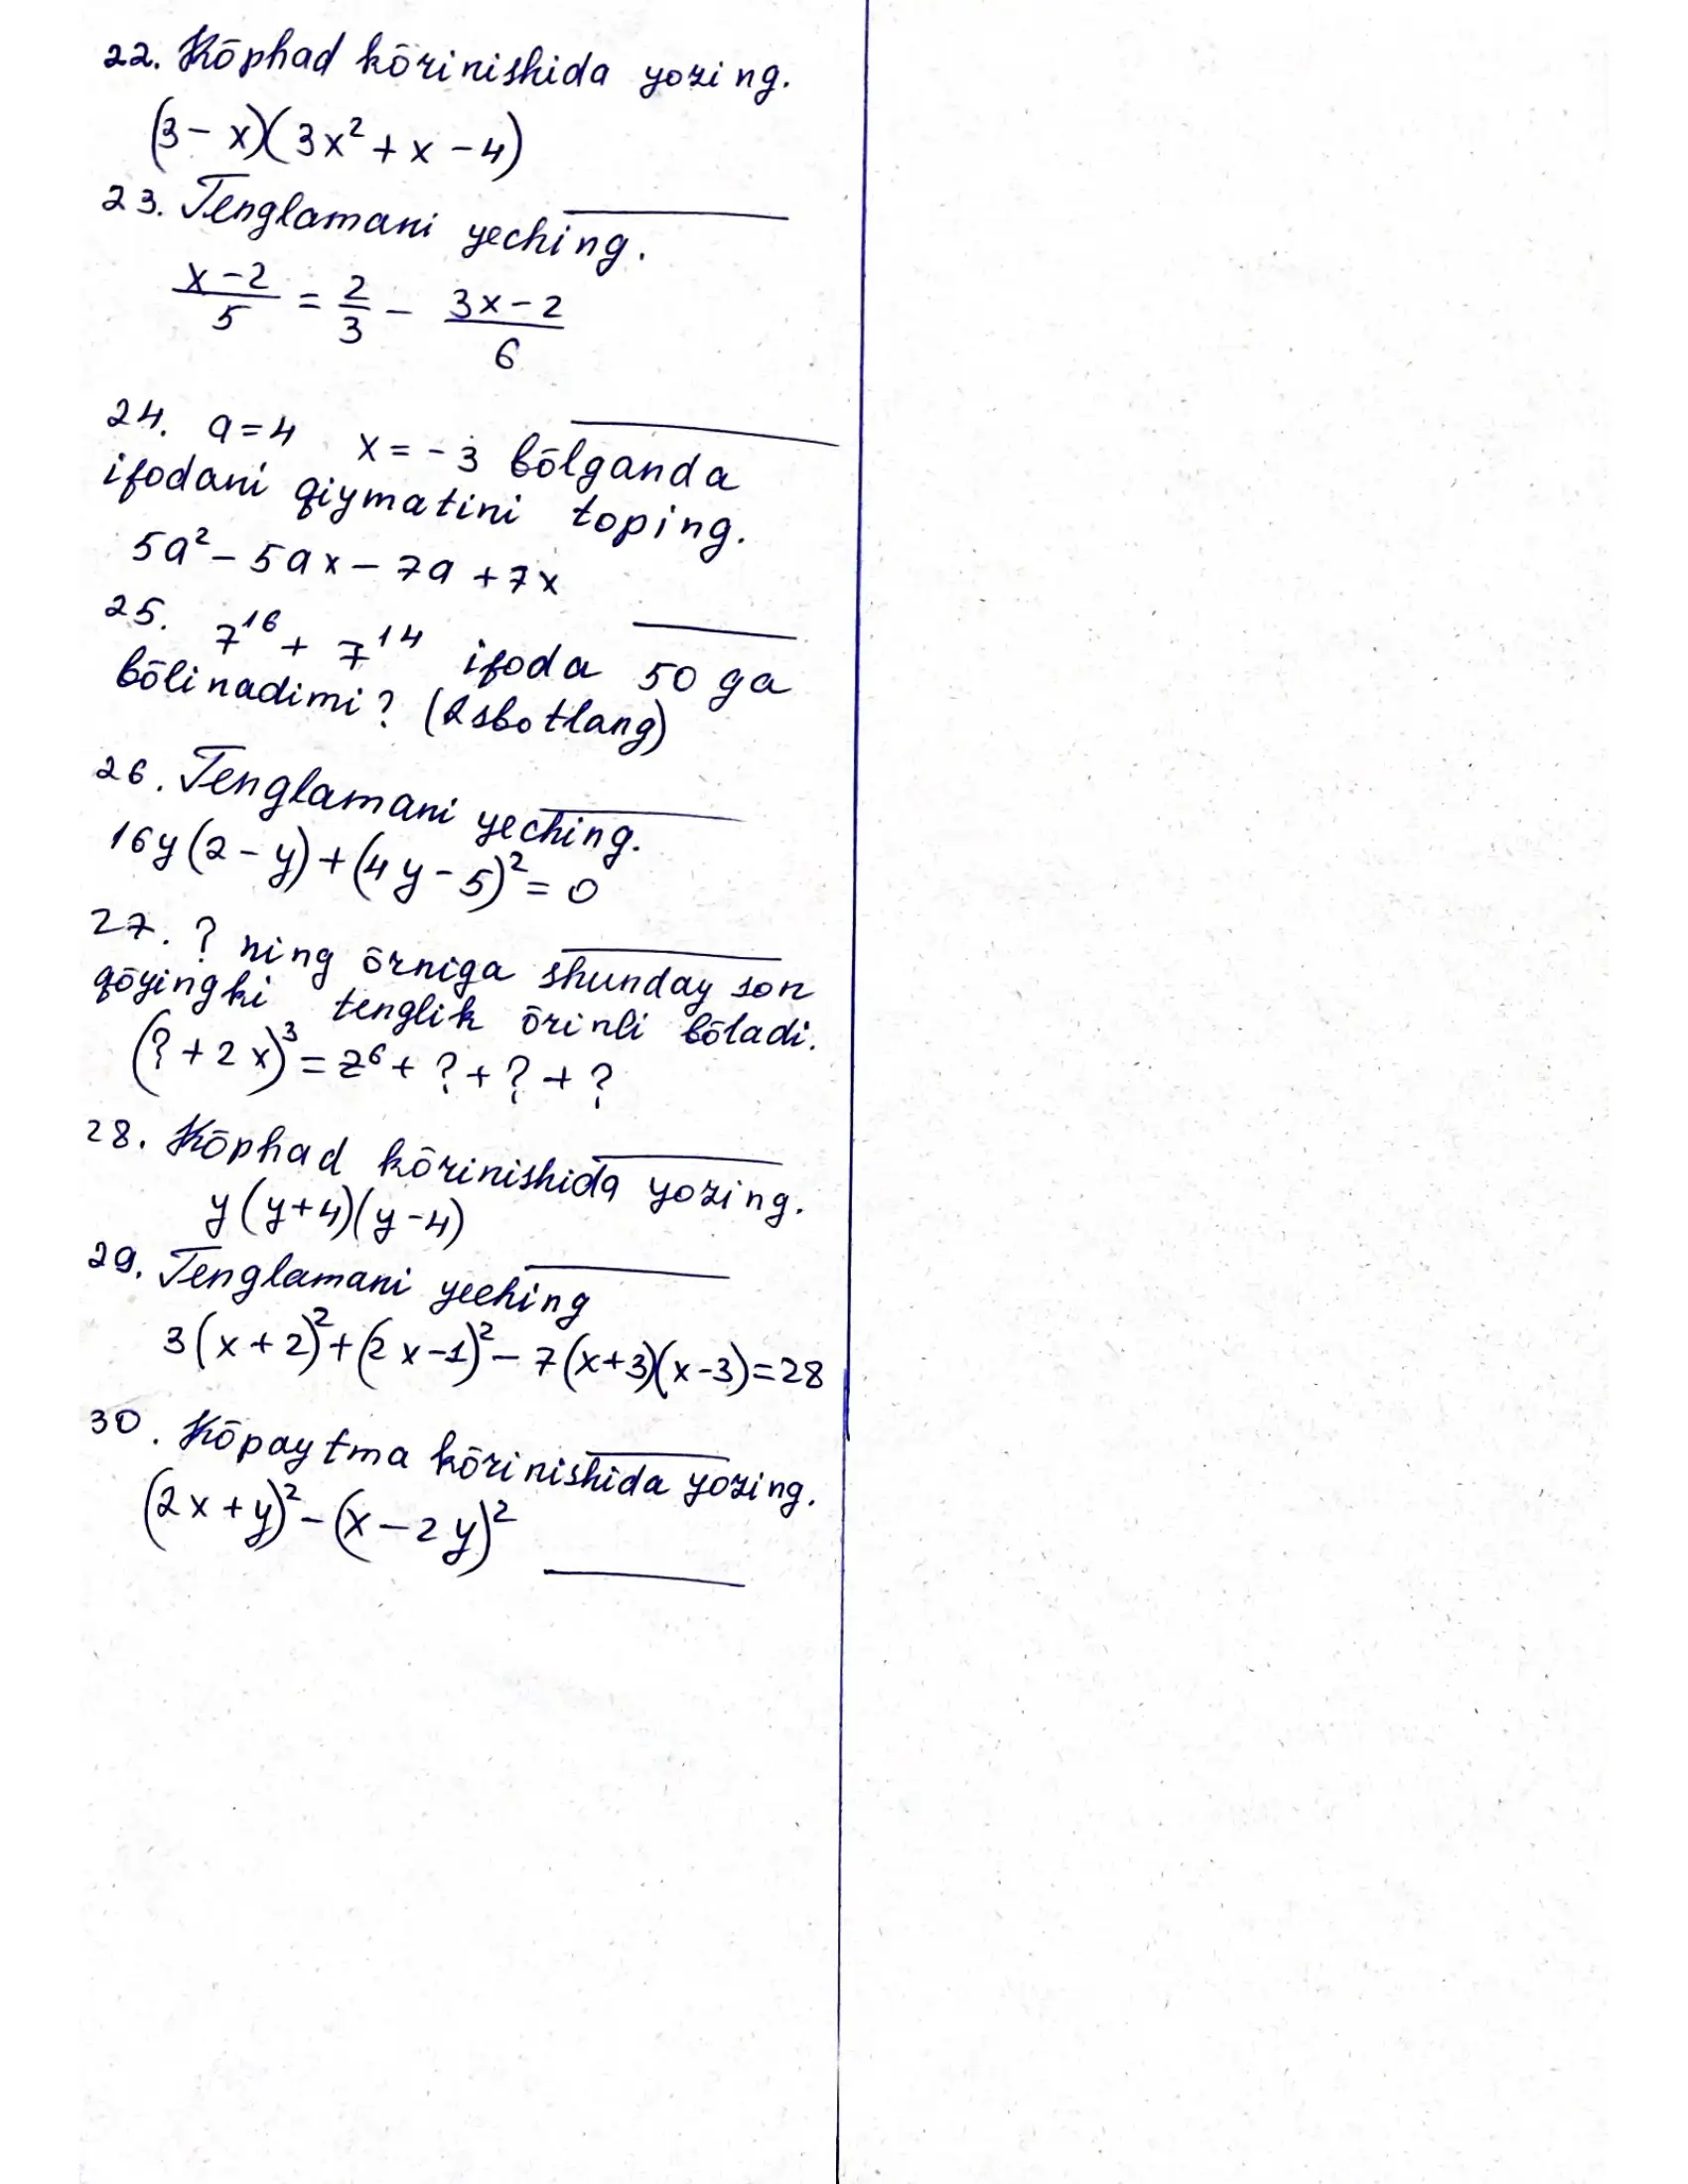 22. Kōphad kōrinishida yozing.
(3 - x)(3x² + x - 4)
23. Tenglamani yeching.
(x-2)/5 = 2/3 - (3x-2)/6
24. a=4 x=-3 bōlganda
ifodani qiymatini toping.
5a² - 5ax - 7a + 7x
25. 7¹⁶ + 7¹⁴ ifoda 50 ga
bōlinadimi? (Isbotlang)
26. Tenglamani yeching.
16y(2-y)+(4y-5)²=0
27. ? ning ōrniga shunday son
qōyingki tenglik ōrinli bōladi.
(?+2x)³=z⁶+?+?+?
28. Kōphad kōrinishida yozing.
y(y+4)(y-4)
29. Tenglamani yeching
3(x+2)²+(2x-1)²-7(x+3)(x-3)=28
30. Kōpaytma kōrinishida yozing.
(2x+y)²-(x-2y)²